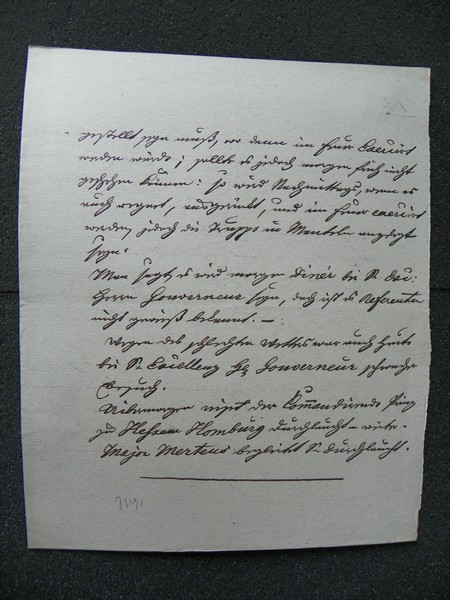 gestellt seyn muß, wo dann im Feuer Exercirt
werden würde; sollte es jedoch morgen früh nicht
geschehen können: so wird Nachmittags, wenn es
auch regnet, ausgerückt, und im Feuer exercirt
werden, jedoch die Trupps in Mänteln angelegt
seyn.
Man sagt es wird morgen Dinér bei Sr. Exc:
Herrn Gouverneur seyn, doch ist es Referenten
nicht gewiß bekannt. —
Wegen des schlechten Wetters war auch heute
bei Sr. Excellenz H. Gouverneur schwacher
Besuch.
Uibermorgen der Commandirende Prinz
zu Hessen Homburg Durchlaucht —
Major Mertens begleitet Sr. Durchlaucht.